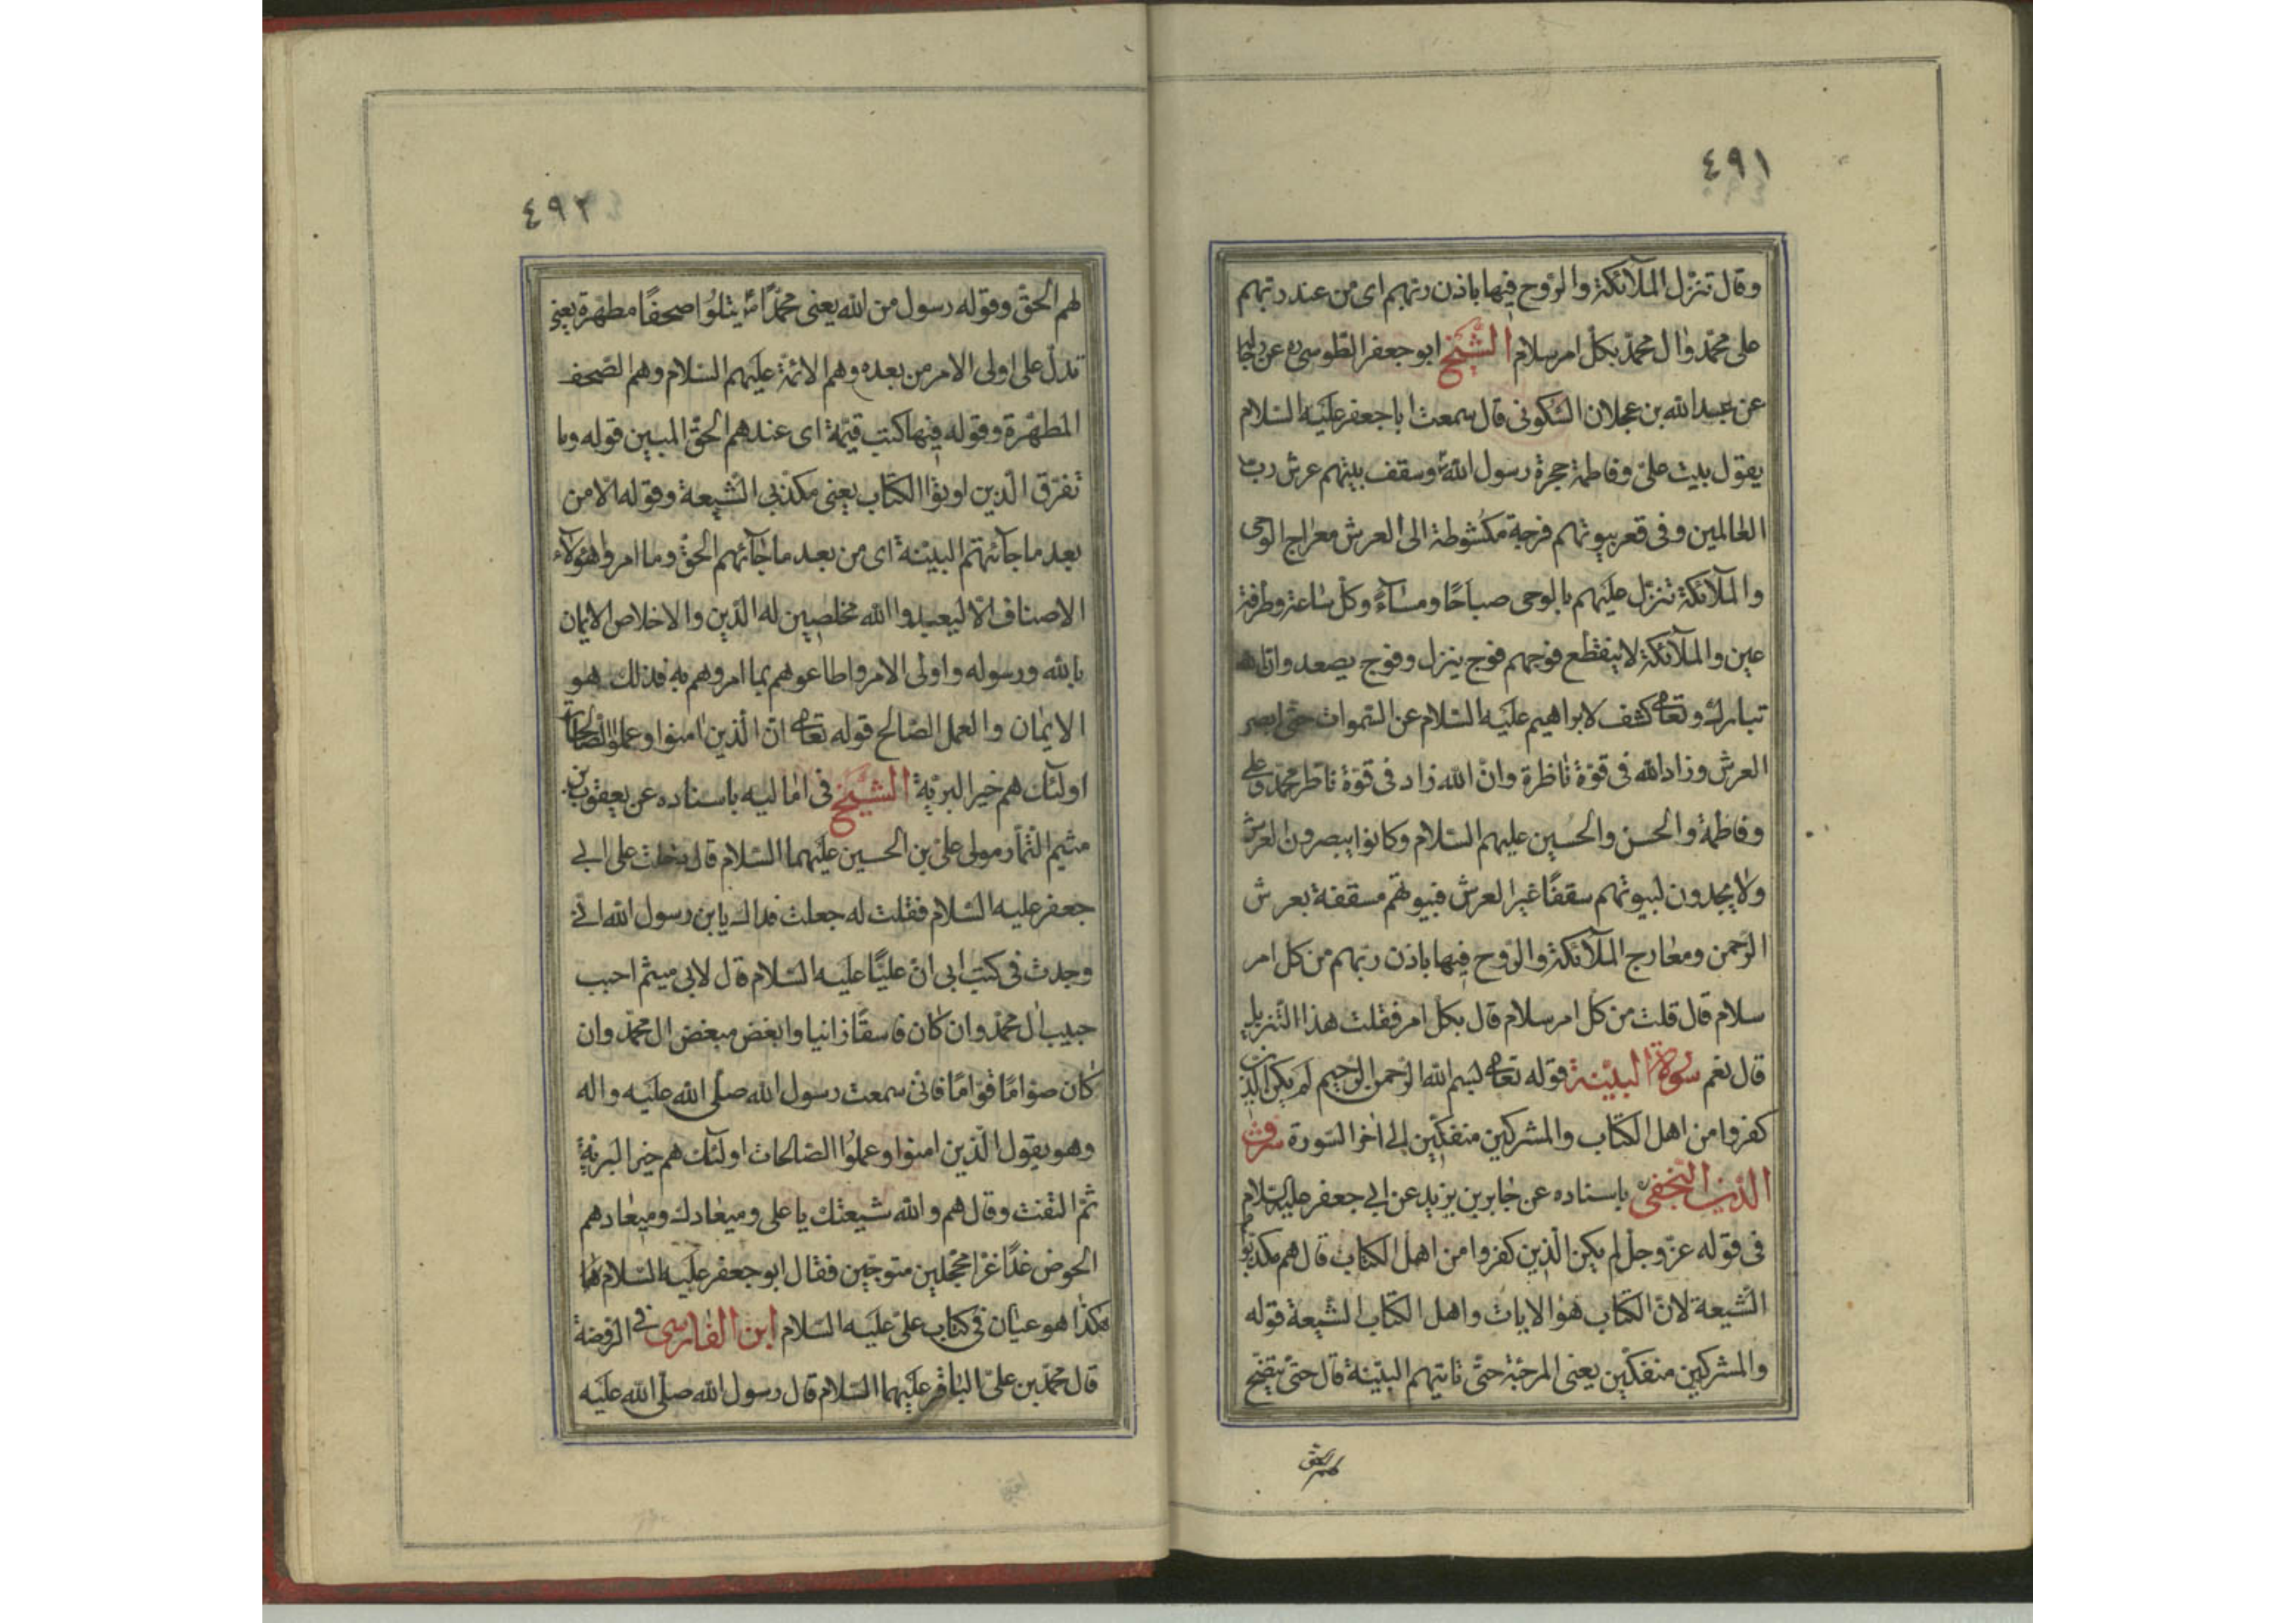 ٤٩١
وقال تنزّل الملآئكة والرّوح فيها باذن ربّهم اى من عند ربّهم
على محمّد وال محمّد بكلّ امر سلام الشّيخ ابو جعفر الطّوسى ره عن رجاله
عن عبد الله بن عجلان السّكونى قال سمعت ابا جعفر عليه السّلام
يقول بيت علىّ وفاطمة حجرة رسول الله ص وسقف بيتهم عرش ربّ
العالمين وفى قعر بيوتهم فرجة مكشوطة الى العرش معراج الوحى
والملآئكة تنزّل عليهم بالوحى صباحًا ومسآءً وكلّ ساعة وطرفة
عين والملآئكة لا ينقطع فوجهم فوج ينزل وفوج يصعد وانّ الله
تبارك وتعالى كشف لابراهيم عليه السّلام عن السّموات حتّى ابصر
العرش وزاد الله فى قوّة ناظرة وانّ الله زاد فى قوّة ناظر محمّد وعلى
وفاطمة والحسن والحسين عليهم السّلام وكانوا يبصرون العرش
ولا يجدون لبيوتهم سقفًا غير العرش فبيوتهم مسقفة بعرش
الرّحمن ومعارج الملآئكة والرّوح فيها باذن ربّهم من كل امر
سلام قال قلت من كلّ امر سلام قال بكل امر فقلت هذا التّنزيل
قال نعم سورة البيّنة قوله تعالى بسم الله الرّحمن الرّحيم لم يكن الّذين
كفروا من اهل الكتاب والمشركين منفكّين الى اخر السّورة شرف
الدّين النّجفى ره باسناده عن جابر بن يزيد عن ابى جعفر عليه السّلام
فى قوله عزّ وجلّ لم يكن الّذين كفروا من اهل الكتاب قال هم مكذّبوا
الشّيعة لانّ الكتاب هو الايات واهل الكتاب الشّيعة قوله
والمشركين منفكّين يعنى المرجئة حتّى تاتيهم البيّنة قال حتّى يتضّح
لهم الحق
٤٩٢
لهم الحقّ وقوله رسول من الله يعنى محمّدًا ص يتلوا صحفًا مطهّرة يعنى
تدلّ على اولى الامر من بعده وهم الائمّة عليهم السّلام وهم الصّحف
المطهّرة وقوله فيها كتب قيّمة اى عندهم الحقّ المبين قوله وما
تفرّق الّذين اوتوا الكتاب يعنى مكذّبى الشّيعة وقوله الا من
بعد ما جآئتهم البيّنة اى من بعد ما جآئهم الحقّ وما امروا هؤلآء
الاصناف الّا ليعبدوا الله مخلصين له الدّين والاخلاص الايمان
بالله ورسوله واولى الامر واطاعوهم بما امروهم به فذلك هو
الايمان والعمل الصّالح قوله تعالى انّ الّذين امنوا وعملوا الصّالحات
اولئك هم خير البريّة الشّيخ فى اماليه باسناده عن يعقوب بن
ميثم التّمار مولى علىّ بن الحسين عليهما السّلام قال دخلت على ابى
جعفر عليه السّلام فقلت له جعلت فداك يابن رسول الله انّى
وجدت فى كتب ابى انّ عليًّا عليه السّلام قال لابى ميثم احبب
حبيب ال محمّد وان كان فاسقًا زانيا وابغض مبغض ال محمّد وان
كان صوّامًا قوّامًا فانّى سمعت رسول الله صلّى الله عليه واله
وهو يقول الّذين امنوا وعملوا الصّالحات اولئك هم خير البريّة
ثمّ التفت وقال هم والله شيعتك يا على وميعادك وميعادهم
الحوض غدًا غرّا محجّلين متوّجين فقال ابو جعفر عليه السّلام
هكذا هو عيان فى كتاب علىّ عليه السّلام ابن الفارسى فى الرّوضة
قال محمّد بن علىّ الباقر عليهما السّلام قال رسول الله صلّى الله عليه